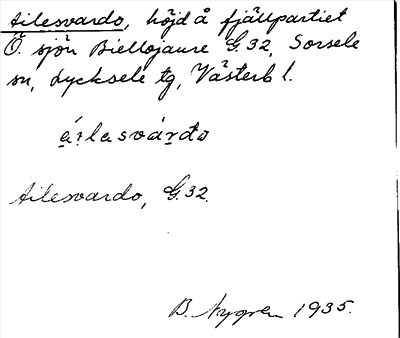 Ailesvardo, höjd å fjällpartiet
Ö. sjön Biellojaure G. 32, Sorsele
sn, Lycksele tg, Västerb l.
á̱i̱lasváṟđo
Ailesvardo, G. 32.
B. Nygren 1935.